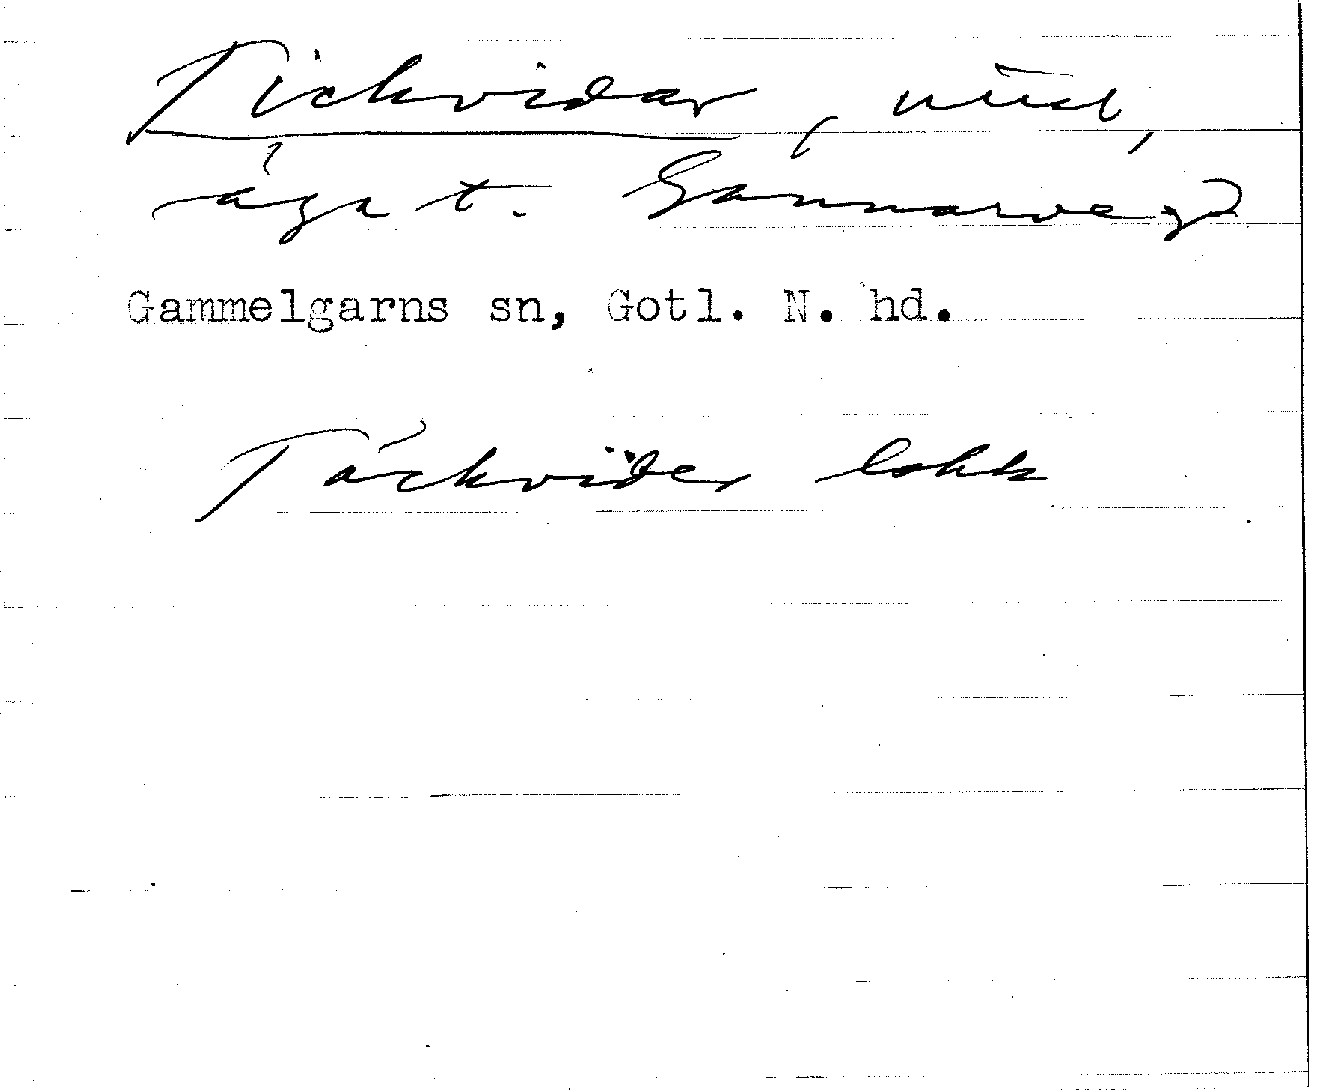 Tickvidar,
ägat. Gannarve
Gammelgarns sn, Gotl. N. hd.
Täckvider